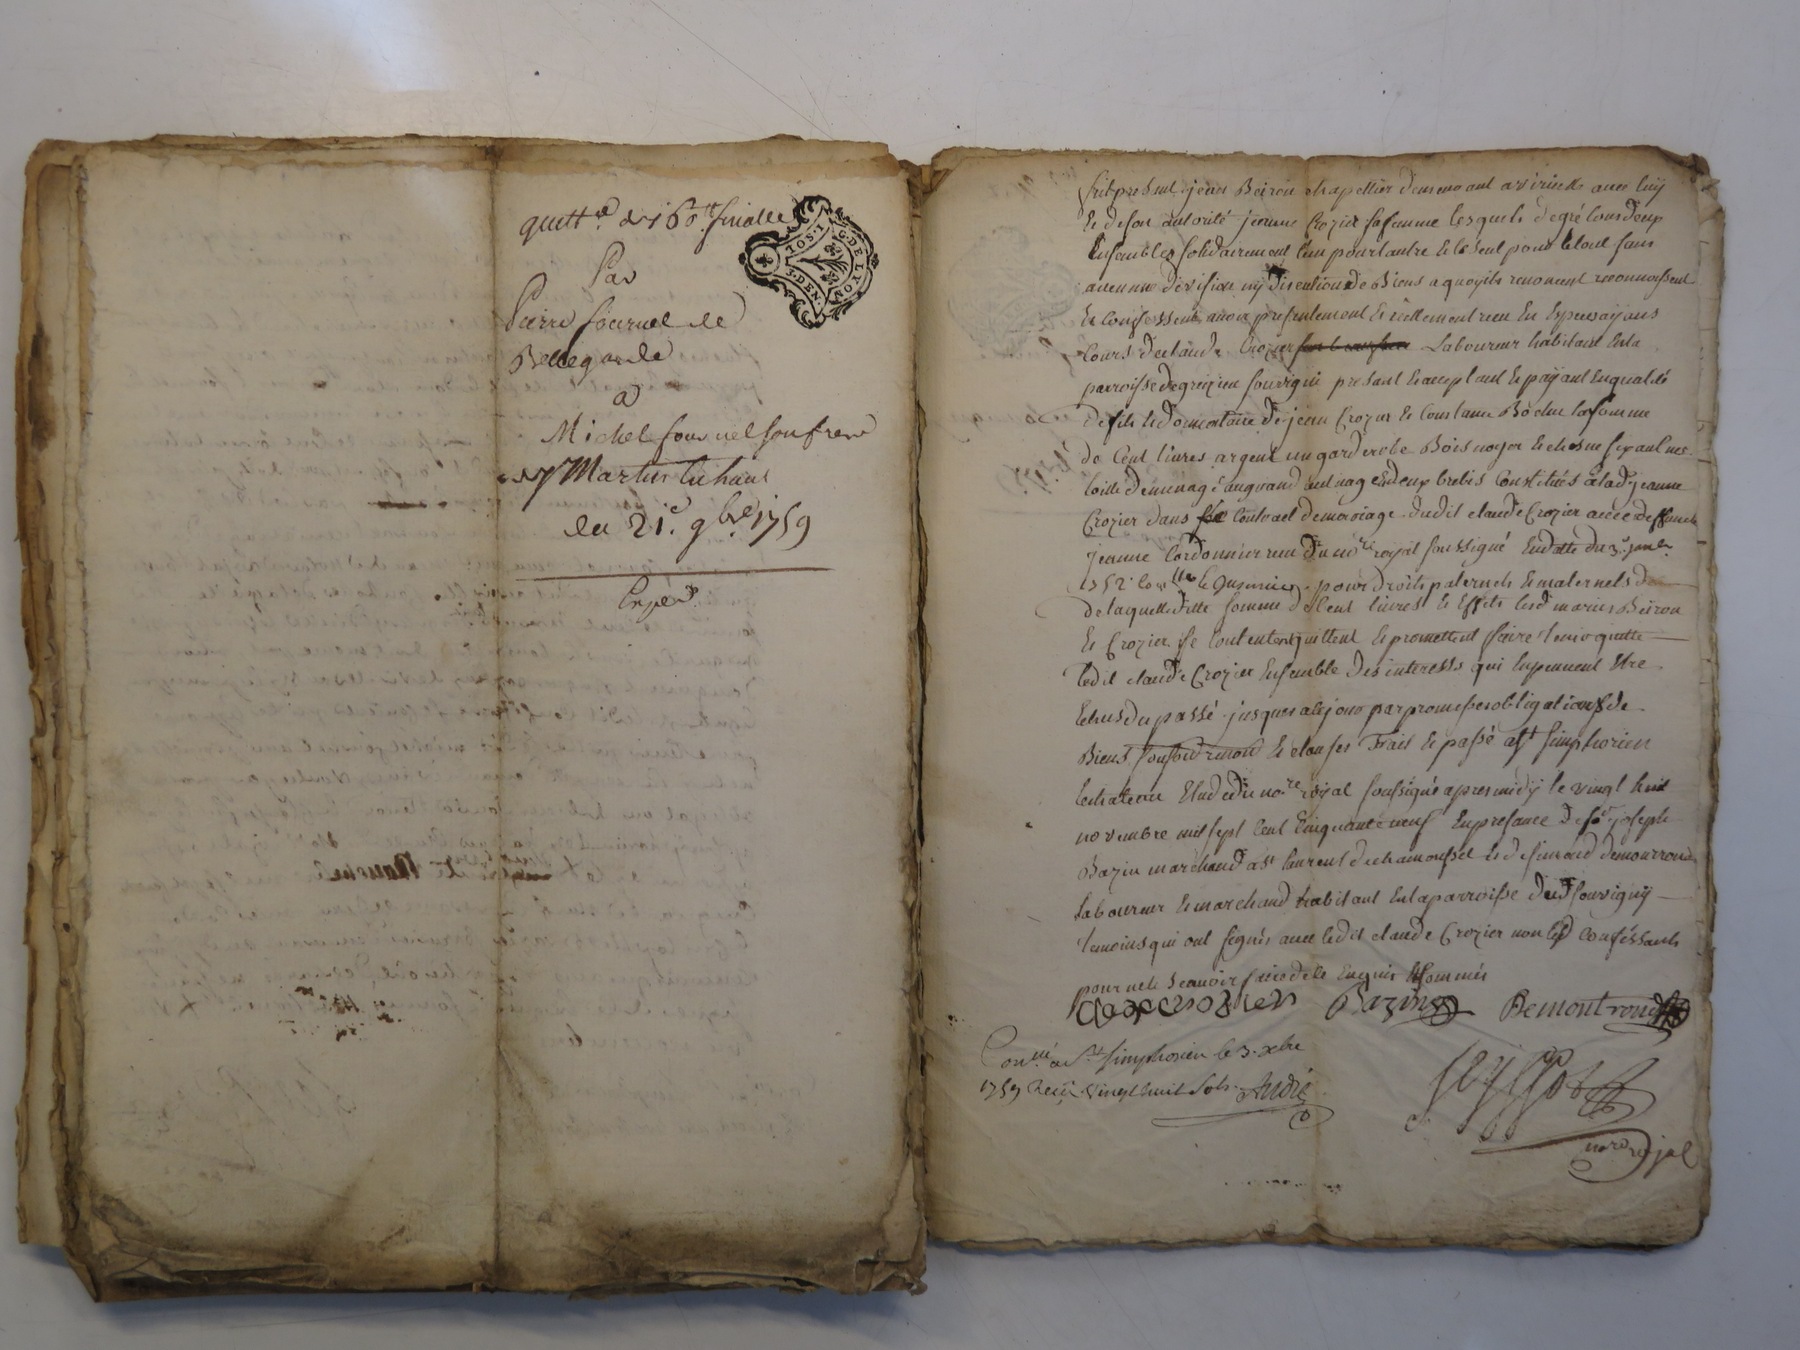 quitt.ce de 160.lt finalle
Par
Pierre fournel de
Bellegarde
a
Michel fournel son frere
de St Martin
du 21.e 9bre 1759
Exped.
TOS:I G.DE LYON
3.DEN.
fut present jean Beiron chapellier demeurant a virinelle avec luy
Et de son autorité jeanne Crozier sa femme lesquels de gré tous deux
Ensembles solidairement l'un pour l'autre Et le seul pour le tout sans
aucunne division ny discution de Biens a quoy ils renoncent reconnoissent
Et Confessent avoir presentement Et réellement receu En Especes ayans
Cours de claude Crozier Laboureur habitant En la
parroisse de grezieu souvigni present Et acceptant Et payant En qualité
de fils Et donnataire de jean Crozier Et Constance sa femme
de Cent livres argent un garderobe Bois noyer Et chesne six aulnes
toille de menage au grand aulnage Et deux brebis Constitués a lad. jeanne
Crozier dans Contract de mariage dudit claude Crozier avec deffunte
jeanne Cordonnier receu du no.re royal soussigné En datte du 3.e
1752 pour droits paternels Et maternels
de laquelle ditte somme de Cent livres Et Effets lesd. mariés Beiron
Et Crozier se Contentent quittent Et promettent faire tenir quitte
ledit claude Crozier Ensemble des interests qui En peuvent Etre
Echus du passé jusques a ce jour par promesses obligations de
Biens Et clauses Fait Et passé a St Simphorien
le chateau Etude du no.re royal soussigné apres midy le vingt huit
novembre mil sept Cent Cinquante neuf En presance de sr joseph
Bazin marchand a St laurent de chamousset Et de simond demontrond
Laboureur Et marchand habitant En la parroisse dud. souvigny
temoins qui ont signés avec ledit claude Crozier non les Confessants
pour ne le scavoir faire de ce Enquis Et sommés
Crozier Bazin Demontrond
Con.llé a St Simphorien le 3. xbre
1759 Receu vingt huit sols. André
no.re royal